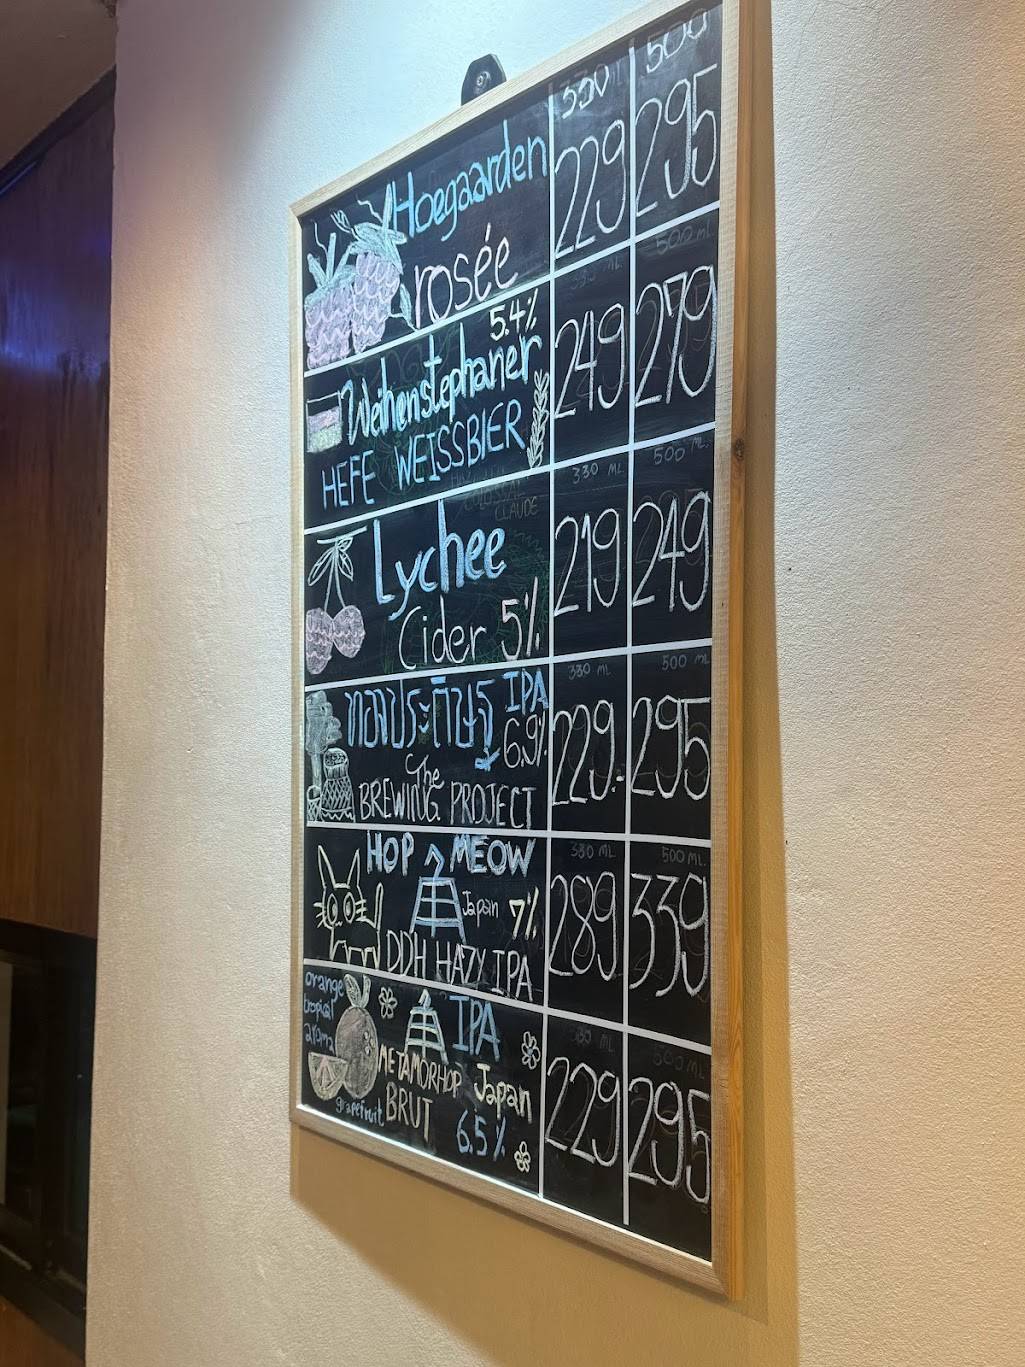 330 500
Hoegaarden 229 295
rosée
5.4% 500 ml
Weihenstephaner 249 279
HEFE WEISSBIER
330 ML 500 ML
CLAUDE
Lychee 219 249
Cider 5%
330 ML 500 ML
ทองประดิษฐ์ IPA
6.9% 229.- 295
The
BREWING PROJECT
HOP MEOW 330 ML 500 ML.
Japan 7% 289 339
DDH HAZY IPA
orange
tropical
aroma
IPA 330 ML 500 ML
METAMORHOP Japan 229 295
grapefruit BRUT
6.5%